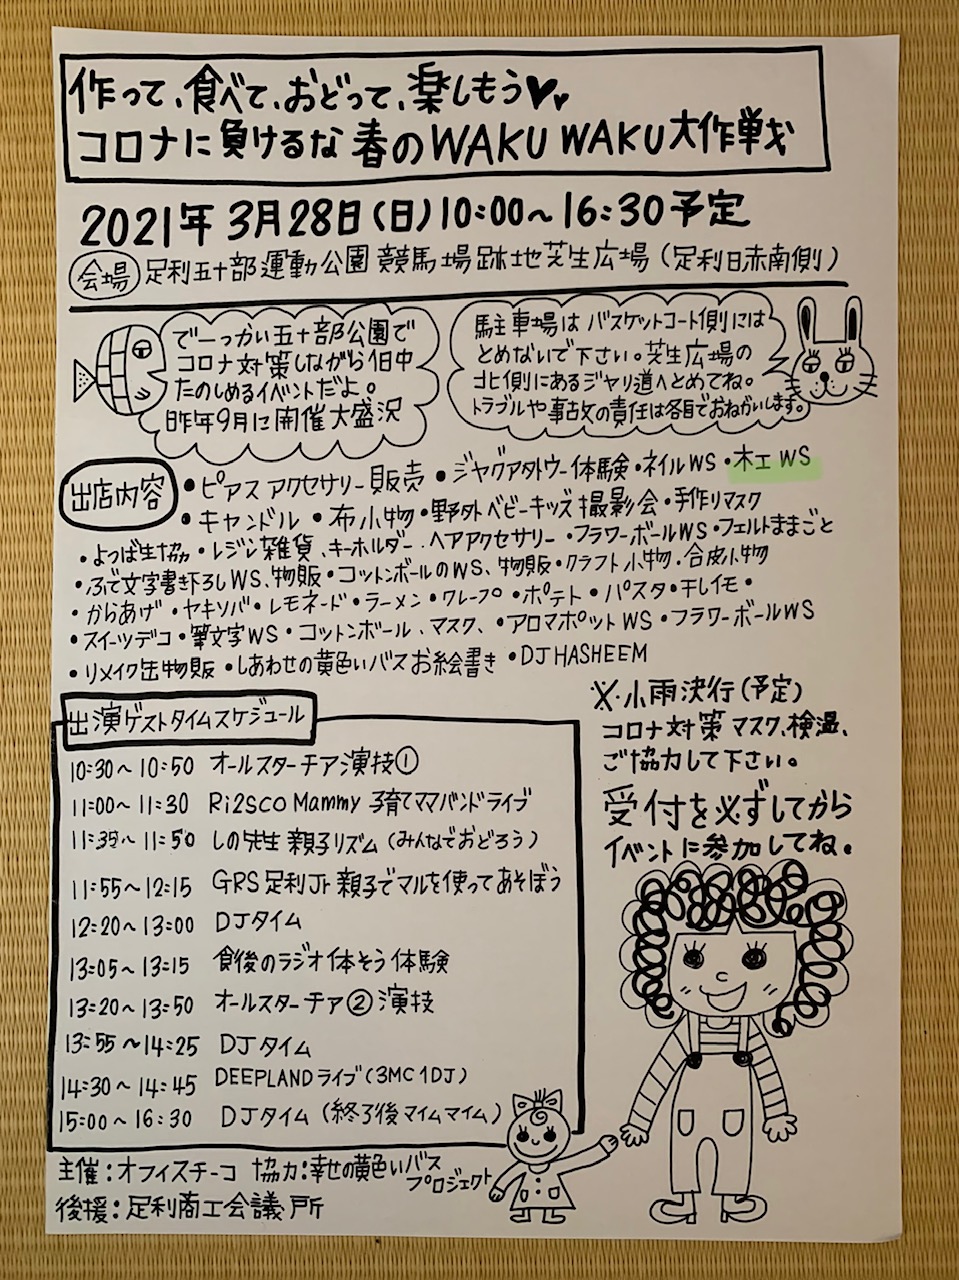 作って、食べて、おどって、楽しもう♥♥
コロナに負けるな 春のWAKU WAKU大作戦
2021年 3月28日(日)10:00〜16:30予定
会場 足利五十部運動公園 競馬場跡地芝生広場(足利日赤南側)
でーっかい五十部公園で
コロナ対策しながら1日中
たのしめるイベントだよ。
昨年9月に開催大盛況
駐車場は バスケットコート側には
とめないで下さい。芝生広場の
北側にあるジャリ道へとめてね。
トラブルや事故の責任は各自でおねがいします。
出店内容 ・ピアス アクセサリー販売 ・ジャグアタトゥー体験・ネイルWS・木工WS
・キャンドル ・布小物・野外ベビーキッズ撮影会・手作りマスク
・よつば生協・レジン雑貨、キーホルダー、ヘアアクセサリー・フラワーボールWS・フェルトままごと
・ふで文字書き下ろしWS、物販・コットンボールのWS、物販・クラフト小物・合皮小物
・からあげ・ヤキソバ・レモネード・ラーメン・クレープ・ポテト・パスタ・干しイモ・
・スイーツデコ・筆文字WS・コットンボール、マスク、・アロマポットWS・フラワーボールWS
・リメイク缶物販・しあわせの黄色いバスお絵書き・DJ HASHEEM
※小雨決行(予定)
コロナ対策 マスク、検温、
ご協力して下さい。
受付を必ずしてから
イベントに参加してね。
出演ゲストタイムスケジュール
10:30〜10:50 オールスターチア演技①
11:00〜11:30 Ri2SCO Mammy 子育てママバンドライブ
11:35〜11:50 しの先生 親子リズム(みんなでおどろう)
11:55〜12:15 GRS足利Jr 親子でマルを使ってあそぼう
12:20〜13:00 DJタイム
13:05〜13:15 食後のラジオ体そう体験
13:20〜13:50 オールスターチア②演技
13:55〜14:25 DJタイム
14:30〜14:45 DEEPLANDライブ(3MC1DJ)
15:00〜16:30 DJタイム(終了後マイムマイム)
主催:オフィスチーコ 協力:幸せの黄色いバス
プロジェクト
後援:足利商工会議所